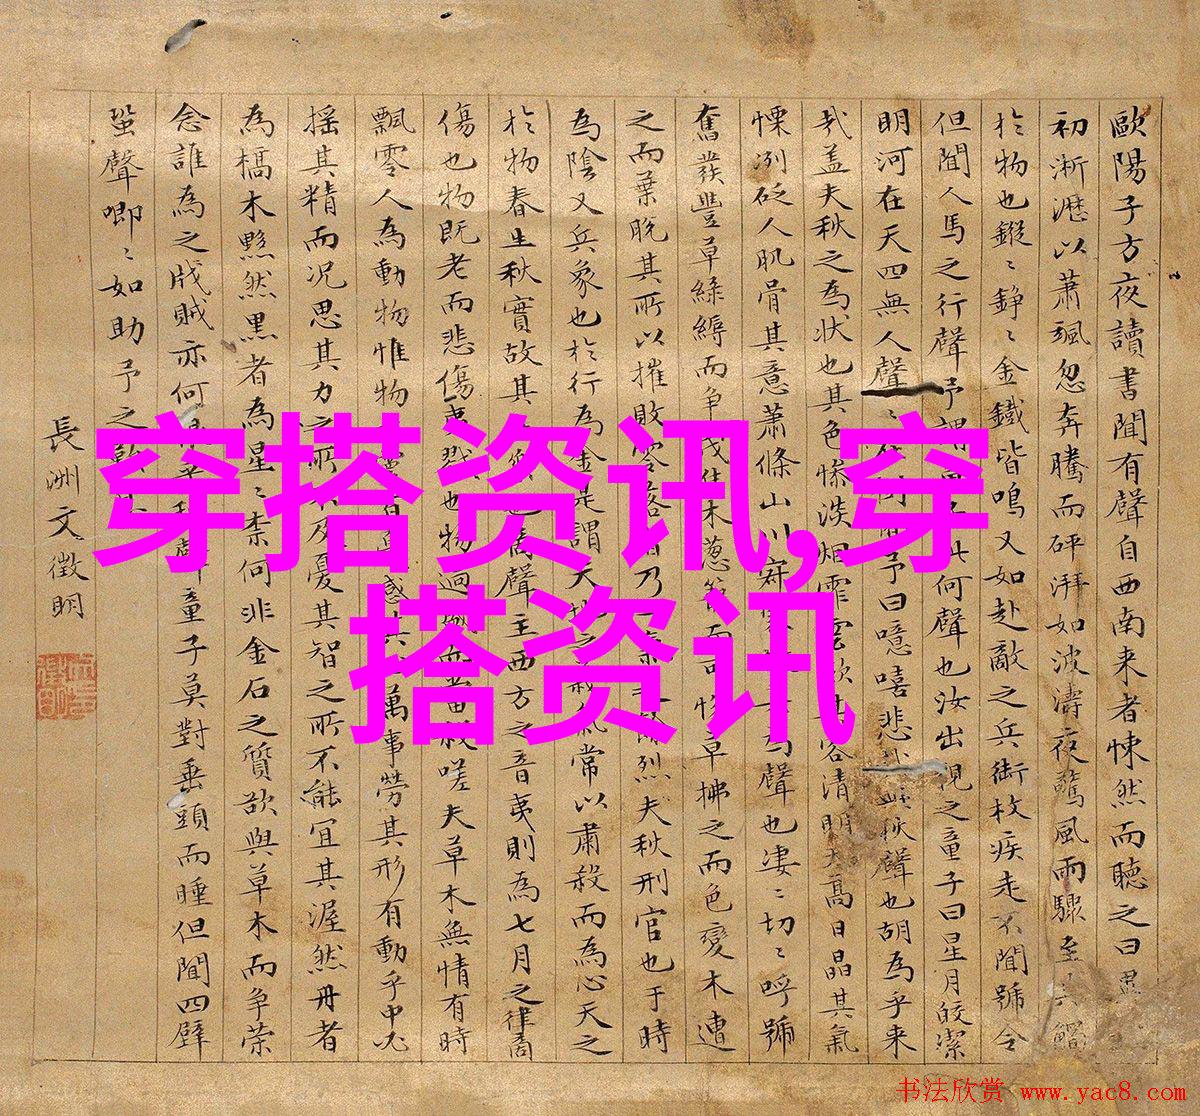 歐陽子方夜讀書聞有聲自西南来者悚然而聽之曰
初淅瀝以蕭颯忽奔騰而砰湃如波濤夜驚風雨驟至其觸
於物也鏦〻錚〻金鐵皆鳴又如赴敵之兵銜枚疾走不聞號令
但聞人馬之行聲予謂此何聲也汝出視之童子曰星月皎潔
明河在天四無人聲〻予曰噫嘻悲秋聲也胡為乎来
哉盖夫秋之為状也其色慘淡烟霏雲歛其容清明天高日晶其氣
慄冽砭人肌骨其意蕭條山川寂聲也凄〻切〻呼號
奮發豐草綠縟而争茂佳木葱而可悅草拂之而色變木遭
之而葉脫其所以摧敗零落者乃一烈夫秋刑官也于時
為陰又兵象也於行為金是謂天地之氣常以肅殺而為心天之
於物春生秋實故其也商聲主西方之音夷則為七月之律商
傷也物既老而悲傷夷戮也物過而當殺嗟夫草木無情有時
飄零人為動物惟物感其萬事勞其形有動乎中必
搖其精而况思其力之所不及憂其智之所不能宜其渥然丹者
為槁木黟然黑者為星〻柰何非金石之質欲與草木而争荣
念誰為之戕賊亦何童子莫對垂頭而睡但聞四壁
蛩聲唧〻如助予之歎
長洲文徵明
穿搭资讯,穿
搭资讯
书法欣赏 www.yac8.com